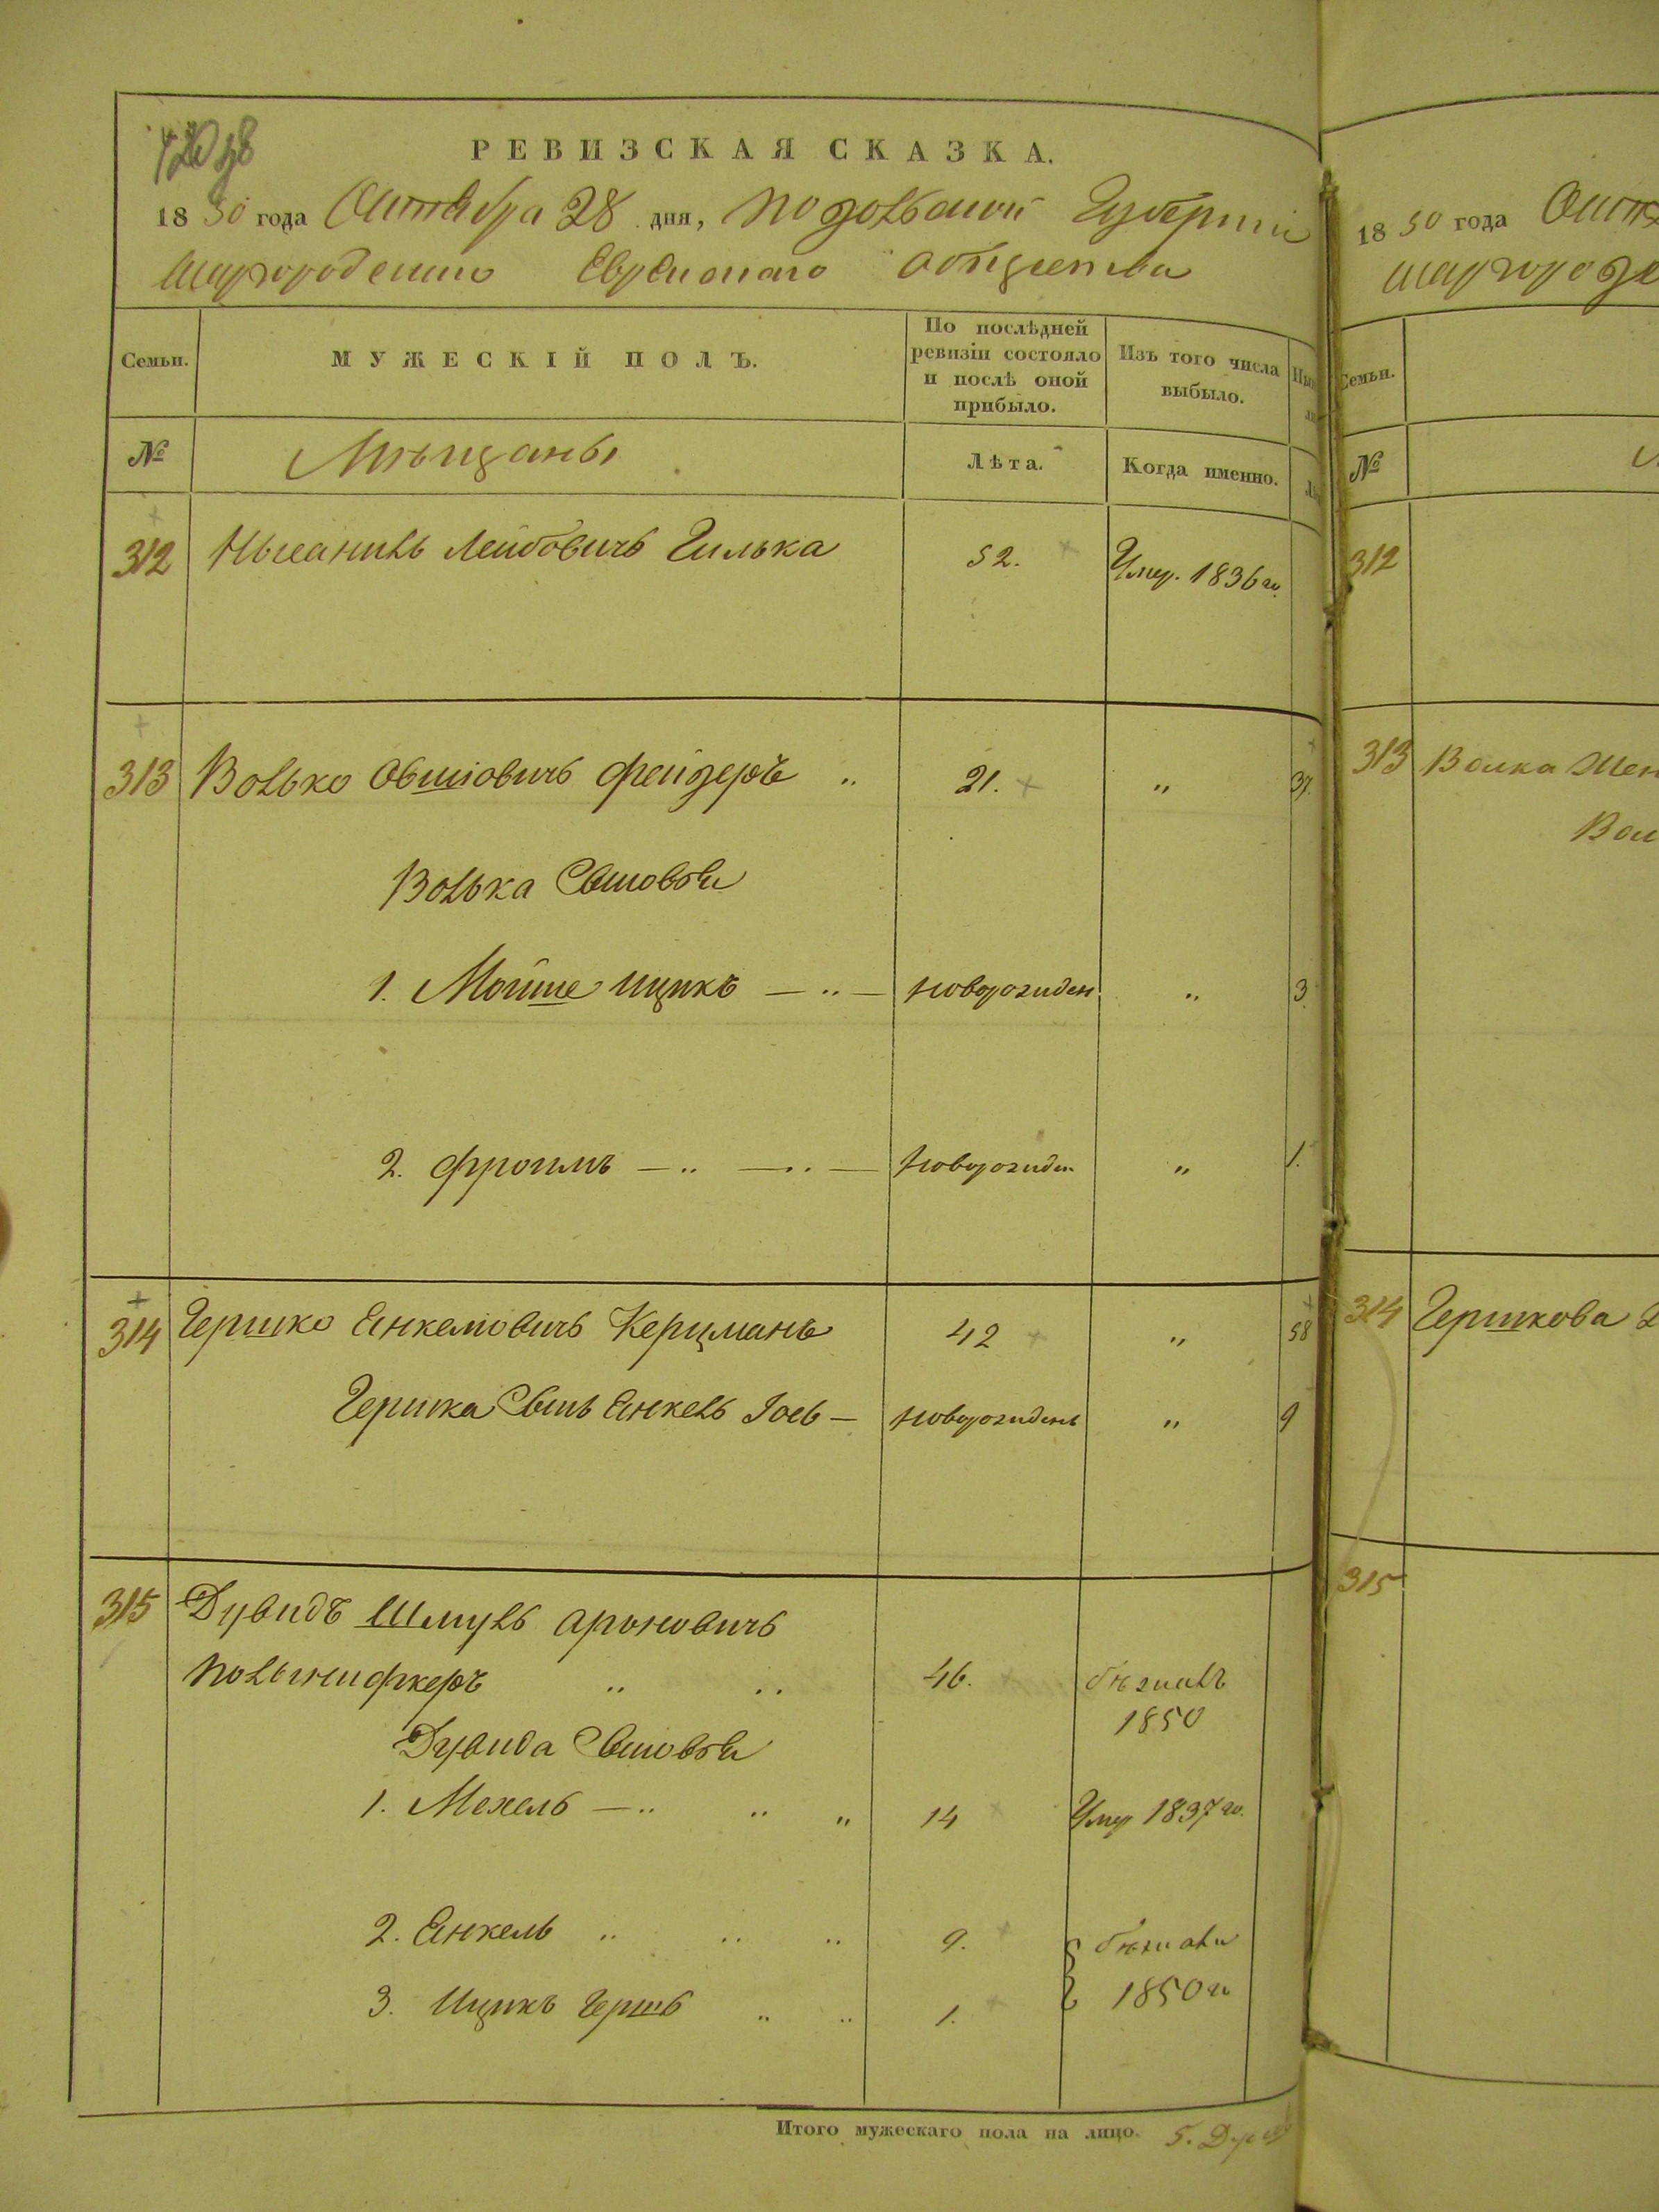 РЕВИЗСКАЯ СКАЗКА.
1850 года Октября 28 дня, Подольской Губерніи
Шаргородскаго Еврейскаго общества
Семьи.
МУЖЕСКІЙ ПОЛЪ.
По послѣдней
ревизіи состояло
и послѣ оной
прибыло.
Изъ того числа
выбыло.
№
Мѣщаны
Лѣта.
Когда именно.
312 Лейбовичъ Гилька 52. Умер. 1836 го.
313 Волько Овшіовичъ Фейдеръ „ 21. „ 37.
Волька Сыновья
1. Мойше Ицикъ — „ — новорожден. „ 3
2. Фроимъ — „ — „ — новорожден. „ 1.
314 Гершко Янкелiовичъ Керцманъ 42 „ 58
Гершка Сынъ Янкель Іось — новорожденъ „ 9
315 Дувидъ Шмуль Ароновичъ
„ „ 46. бѣжалъ
1850
Дувида Сыновья
1. Мехель — „ „ „ 14 Умер 1837 го.
2. Янкель „ „ „ 9. бѣжали
3. Ицикъ Гершъ „ „ 1. 1850 г
Итого мужескаго пола на лицо. 5. Душъ
18 50 года
Семьи.
№
312
313 Волка
314 Гершкова
315